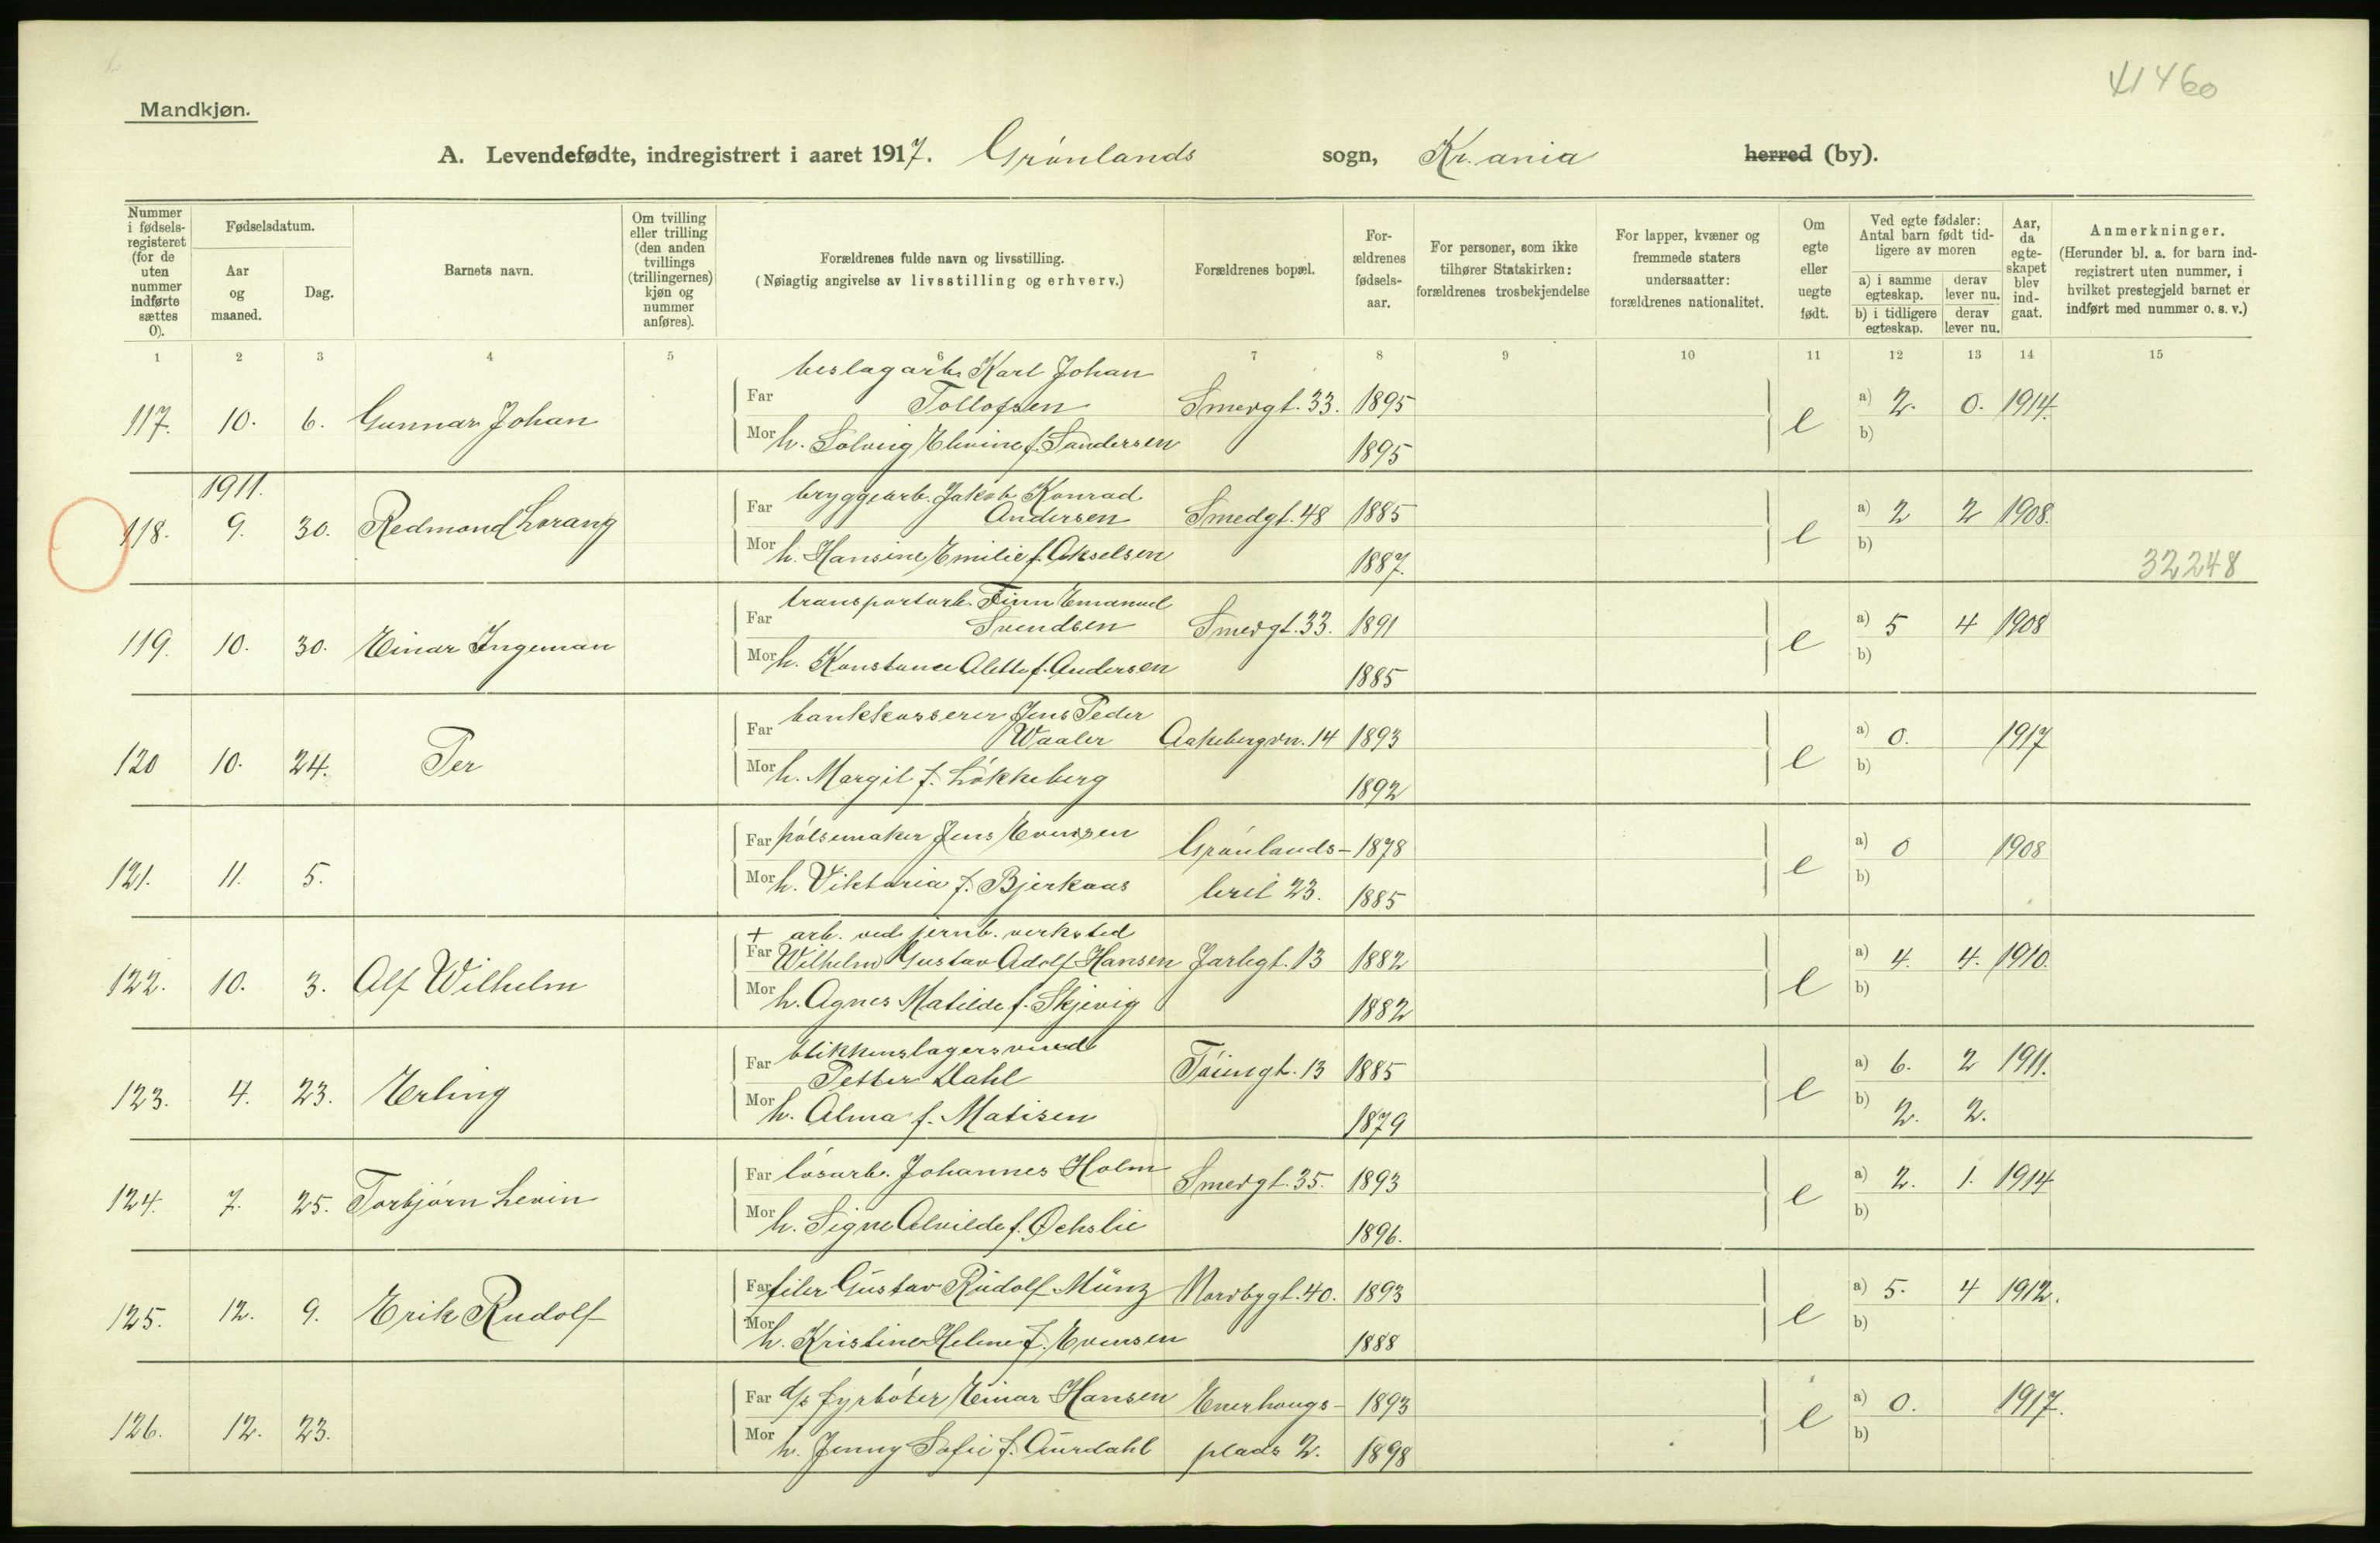 41460
Mandkjøn.
A. Levendefødte, indregistrert i aaret 1917. Grønlands sogn, Kr.ania herred (by).
Nummer i fødsels-registeret (for de uten nummer indførte sættes 0).
Fødselsdatum.
Aar og maaned.
Dag.
Barnets navn.
Om tvilling eller trilling (den anden tvillings (trillingernes) kjøn og nummer anføres).
Forældrenes fulde navn og livsstilling.
(Nøiagtig angivelse av livsstilling og erhverv.)
Forældrenes bopæl.
For-ældrenes fødsels-aar.
For personer, som ikke tilhører Statskirken: forældrenes trosbekjendelse
For lapper, kvæner og fremmede staters undersaatter: forældrenes nationalitet.
Om egte eller uegte født.
Ved egte fødsler: Antal barn født tid-ligere av moren
a) i samme egteskap.
derav lever nu.
b) i tidligere egteskap.
derav lever nu.
Aar, da egte-skapet blev ind-gaat.
Anmerkninger.
(Herunder bl. a. for barn ind-registrert uten nummer, i hvilket prestegjeld barnet er indført med nummer o. s. v.)
1 2 3 4 5 6 7 8 9 10 11 12 13 14 15
beslagarb. Karl Johan
117. 10. 6. Gunnar Johan Far Tollofsen Smedgt. 33. 1895 e a) 2. 0. 1914.
Mor h. Solveig Elvine f. Sandersen 1895 b)
1911.
118. 9. 30. Redmond Lorang Far bryggearb. Jakob Konrad
Andersen Smedgt. 48 1885 e a) 2 2 1908.
Mor h. Hansine Emilie f. Akselsen 1887. b) 32248
transportarb. Finn Emanuel
119. 10. 30. Einar Ingeman Far Svendsen Smedgt. 33. 1891 e a) 5 4 1908
Mor h. Konstance Alette f. Andersen 1885 b)
bankkasserer Jens Peder
120 10. 24. Per Far Waaler Aakebergvn. 14 1893 e a) 0. 1917
Mor h. Margit f. Løkkeberg 1892 b)
121. 11. 5. Far pølsemaker Jens Evensen Grønlands- 1878 e a) 0 1908
Mor h. Viktoria f. Bjerkaas bret 23. 1885 b)
+ arb. ved jernb. verksted
122. 10. 3. Alf Wilhelm Far Wilhelm Gustav Adolf Hansen Jarlegt. 13 1882 e a) 4. 4. 1910.
Mor h. Agnes Matilde f. Skjevig 1882 b)
blikkenslagersvend
123. 4. 23. Erling Far Petter Dahl Tøiengt. 13 1885 e a) 6. 2 1911.
Mor h. Alma f. Matisen 1879 b) 2. 2.
124. 7. 25. Torbjørn Levin Far løsarb. Johannes Holm Smedgt. 35. 1893 e a) 2. 1. 1914
Mor h. Signe Alvilde f. Øchslie 1896. b)
125. 12. 9. Erik Rudolf Far filer Gustav Rudolf Münz Nordbygt. 40. 1893 e a) 5. 4 1912.
Mor h. Kristine Helene f. Evensen 1888 b)
126. 12. 23. Far d/s fyrbøter Einar Hansen Enerhaugs- 1893 e a) 0. 1917.
Mor h. Jenny Sofie f. Aurdahl plads 2. 1898 b)